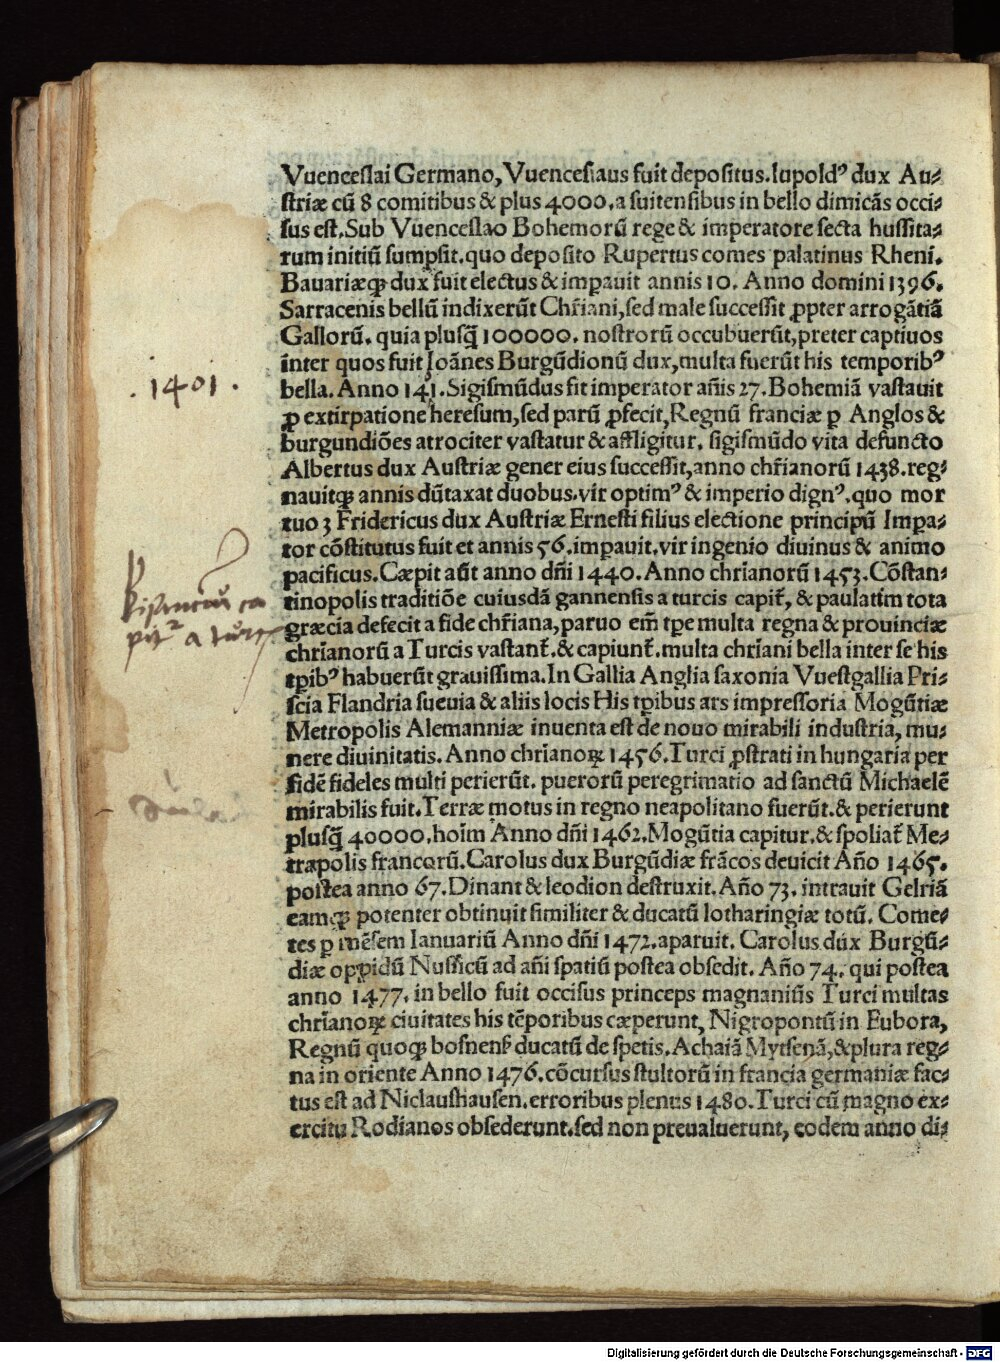 Vuenceslai Germano, Vuenceslaus fuit depositus. lupoldꝰ dux Au⸗
striæ cū 8 comitibus & plus 4000. a suitensibus in bello dimicās occi⸗
sus est. Sub Vuenceslao Bohemorū rege & imperatore secta hussita⸗
rum initiū sumpsit. quo deposito Rupertus comes palatinus Rheni.
Bauariæqꝫ dux fuit electus & imꝑauit annis 10. Anno domini 1396.
Sarracenis bellū indixerūt Chr̄iani, sed male successit ꝓpter arrogātiā
Gallorū. quia plusq̄ 100000. nostrorū occubuerūt, preter captiuos
inter quos fuit Joānes Burgūdionū dux, multa fuerūt his temporibꝰ
bella. Anno 141. Sigismūdus fit imperator añis 27. Bohemiā vastauit
ꝓ extirpatione heresum, sed parū ꝓfecit, Regnū franciæ ꝑ Anglos &
burgundiōes atrociter vastatur & affligitur. sigismūdo vita defuncto
Albertus dux Austriæ gener eius successit, anno chr̄ianorū 1438. reg⸗
nauitqꝫ annis dūtaxat duobus. vir optimꝰ & imperio dignꝰ. quo mor
tuo ꝫ Fridericus dux Austriæ Ernesti filius electione principū Imꝑa⸗
tor cōstitutus fuit et annis 56. imꝑauit. vir ingenio diuinus & animo
pacificus. Cæpit aūt anno dñi 1440. Anno chr̄ianorū 1453. Cōstan⸗
tinopolis traditiōe cuiusdā gannensis a turcis capit̄, & paulatim tota
græcia defecit a fide chr̄iana, paruo em̄ tꝑe multa regna & prouinciæ
chr̄ianorū a Turcis vastant̄. & capiunt̄. multa chr̄iani bella inter se his
tꝑibꝰ habuerūt grauissima. In Gallia Anglia saxonia Vuestgallia Pri⸗
scia Flandria sueuia & aliis locis His tꝑibus ars impressoria Mogūtiæ
Metropolis Alemanniæ inuenta est de nouo mirabili industria, mu⸗
nere diuinitatis. Anno chrianoꝝ 1456. Turci ꝓstrati in hungaria per
fidē fideles multi perierūt. puerorū peregrimatio ad sanctū Michaelē
mirabilis fuit. Terræ motus in regno neapolitano fuerūt. & perierunt
plusq̄ 40000. hoim̄ Anno dñi 1462. Mogūtia capitur. & spoliat̄ Me⸗
trapolis francorū. Carolus dux Burgūdiæ frācos deuicit Año 1465.
postea anno 67. Dinant & leodion destruxit. Año 73. intrauit Gelriā
eamqꝫ potenter obtinuit similiter & ducatū lotharingiæ totū. Come⸗
tes ꝑ mēsem Ianuariū Anno dñi 1472. aparuit. Carolus dux Burgū⸗
diæ oppidū Nussicū ad añi spatiū postea obsedit. Año 74. qui postea
anno 1477. in bello fuit occisus princeps magnaniūs Turci multas
chr̄ianoꝝ ciuitates his tēporibus cæperunt, Nigropontū in Eubora,
Regnū quoqꝫ bosnens̄ ducatū de spetis. Achaiā Mytsenā, & plura reg⸗
na in oriente Anno 1476. cōcursus stultorū in francia germaniæ fac⸗
tus est ad Niclaushausen. erroribus plenus 1480. Turci cū magno ex⸗
ercitu Rodianos obsederunt. sed non preualuerunt, eodem anno di⸗
. 1401 .
a
Digitalisierung gefördert durch die Deutsche Forschungsgemeinschaft - DFG